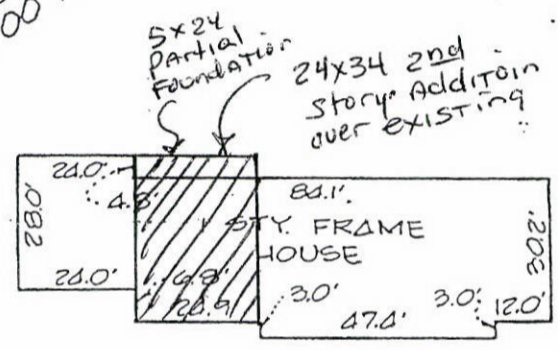 00
5x24
Partial
Foundation
24x34 2nd
Story Additoin
over existing
24.0'
84.1'
4.8'
28.0'
1 STY. FRAME
HOUSE
30.2'
24.0'
4.8'
3.0'
3.0'
12.0'
47.4'